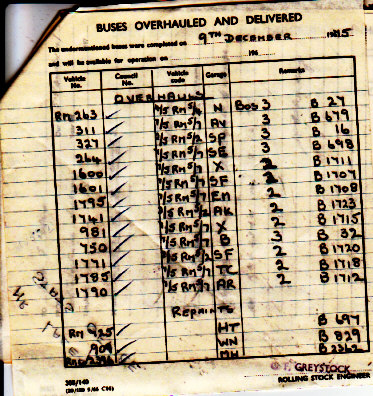 BUSES OVERHAULED AND DELIVERED
The undermentioned buses were completed on 9TH DECEMBER 1975
and will be available for operation on 196
Vehicle No. Council No. Vehicle code Garage Remarks
OVERHAULS
RM 263 ✓ 2/5 RM 5/4 N BOS 3 B 27
311 ✓ 2/5 RM 5/7 AV 3 B 679
327 ✓ 2/5 RM 5/2 SP 3 B 16
264 ✓ 2/5 RM 5/7 SE 3 B 698
1600 ✓ 2/5 RM 5/7 X 2 B 1711
1601 ✓ 2/5 RM 5/7 SF 2 B 1707
1795 ✓ 2/5 RM 5/7 EM 2 B 1708
1741 ✓ 2/5 RM 5/2 AK 2 B 1723
981 ✓ 2/5 RM 5/7 X 2 B 1715
750 ✓ 2/5 RM 5/7 B 3 B 32
1771 ✓ 2/5 RM 5/2 SF 2 B 1720
1785 ✓ 2/5 RM 5/7 TC 2 B 1718
1790 ✓ 2/5 RM 5/7 AR 2 B 1712
REPAINTS
RM 925 HT B 697
909 WN B 829
MH B 2362
GREYSTOCK
ROLLING STOCK ENGINEER